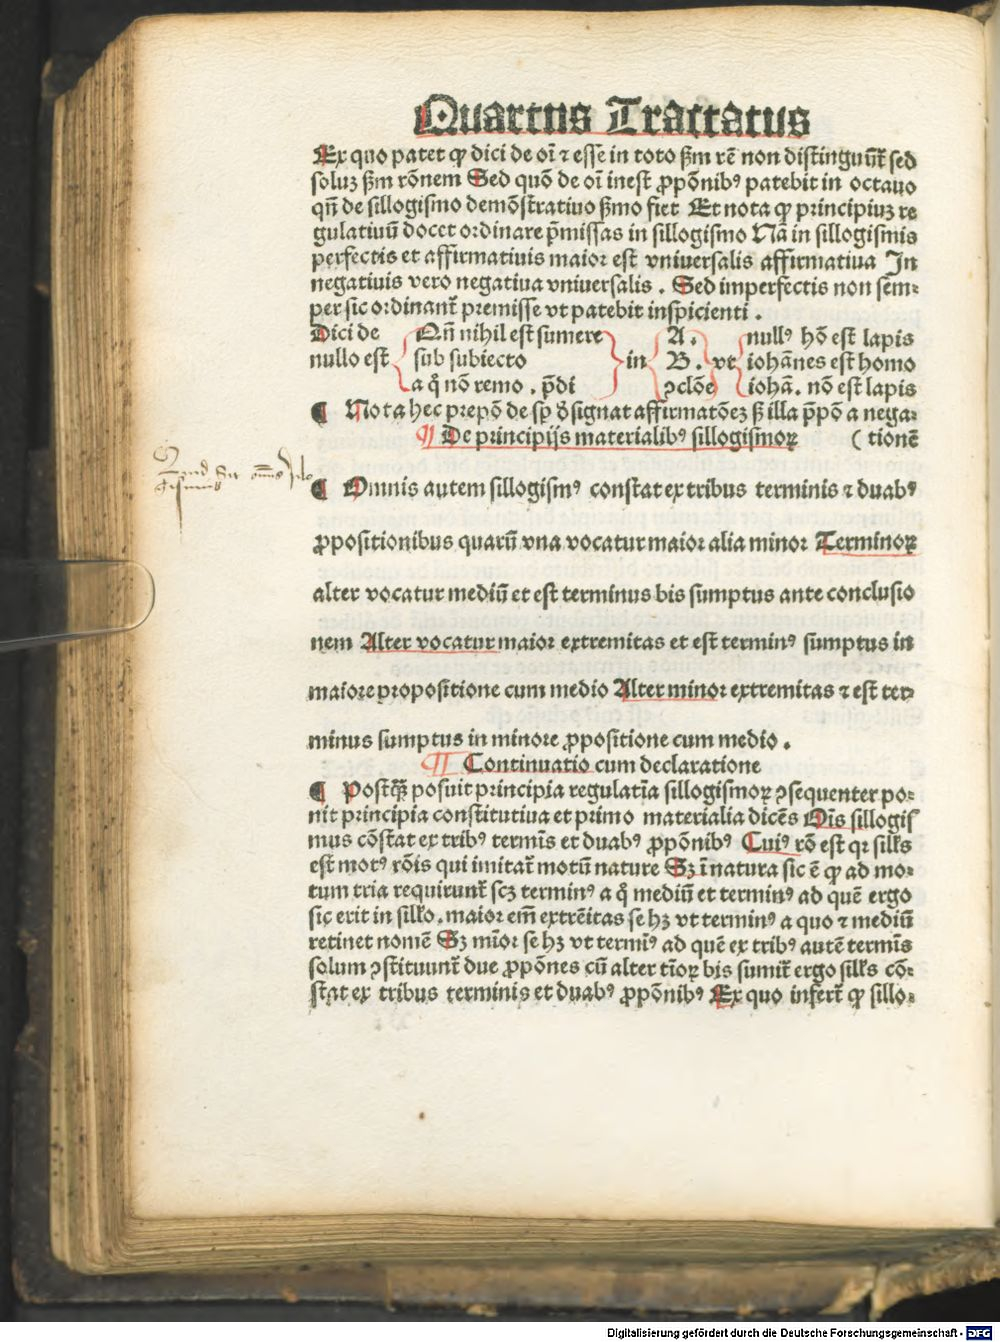 Quartus Tractatus
Ex quo patet ꝙ dici de oī ⁊ esse in toto ẜm rē non distinguūt᷑ sed
soluʒ ẜm rōnem Sed quō de oī inest ꝓpōnibꝰ patebit in octauo
qn̄ de sillogismo demōstratiuo ẜmo fiet Et nota ꝙ principiuʒ re
gulatiuū docet ordinare p̄missas in sillogismo Nā in sillogismis
perfectis et affirmatiuis maior est vniuersalis affirmatiua In
negatiuis vero negatiua vniuersalis . Sed imperfectis non sem⸗
per sic ordinant᷑ premisse vt patebit inspicienti .
Dici de Qn̄ nihil est sumere A . nullꝰ hō est lapis
nullo est sub subiecto in B . vt iohānes est homo
a q̊ nō remo . p̄di ↄclōe iohā. nō est lapis
¶ Nota hec prepō de sp̄ ꝺ̊signat affirmatōeʒ ẜ illa p̄pō a nega⸗
¶ De principijs materialibꝰ sillogismoꝝ ( tionē
¶ Omnis autem sillogismꝰ constat ex tribus terminis ⁊ duabꝰ
ꝓpositionibus quarū vna vocatur maior alia minor Terminoꝝ
alter vocatur mediū et est terminus bis sumptus ante conclusio
nem Alter vocatur maior extremitas et est terminꝰ sumptus in
maiore propositione cum medio Alter minor extremitas ⁊ est ter⸗
minus sumptus in minore ꝓpositione cum medio .
¶ Continuatio cum declaratione
¶ Postq̄ꝫ posuit principia regulatīa sillogismoꝝ ↄsequenter po⸗
nit principia constitutiua et primo materialia dicēs Oīs sillogis
mus cōstat ex tribꝰ termīs et duabꝰ ꝓpōnibꝰ Cuiꝰ rō est qꝛ silƚs
est motꝰ rōis qui imitat᷑ motū nature Sʒ ī natura sic ē ꝙ ad mo⸗
tum tria requirunt᷑ scʒ terminꝰ a q̊ mediū et terminꝰ ad quē ergo
sic erit in silƚo . maior em̄ extrēitas se hʒ vt terminꝰ a quo ⁊ mediū
retinet nomē Sʒ mīor se hʒ vt termīꝰ ad quē ex tribꝰ autē termīs
solum ↄstituunt᷑ due ꝓpōnes cū alter tīoꝝ bis sumit᷑ ergo silƚs cō⸗
stat ex tribus terminis et duabꝰ ꝓpōnibꝰ Ex quo infert᷑ ꝙ sillo⸗
Quid sit omnis sylo
gismus
Digitalisierung gefördert durch die Deutsche Forschungsgemeinschaft - DFG